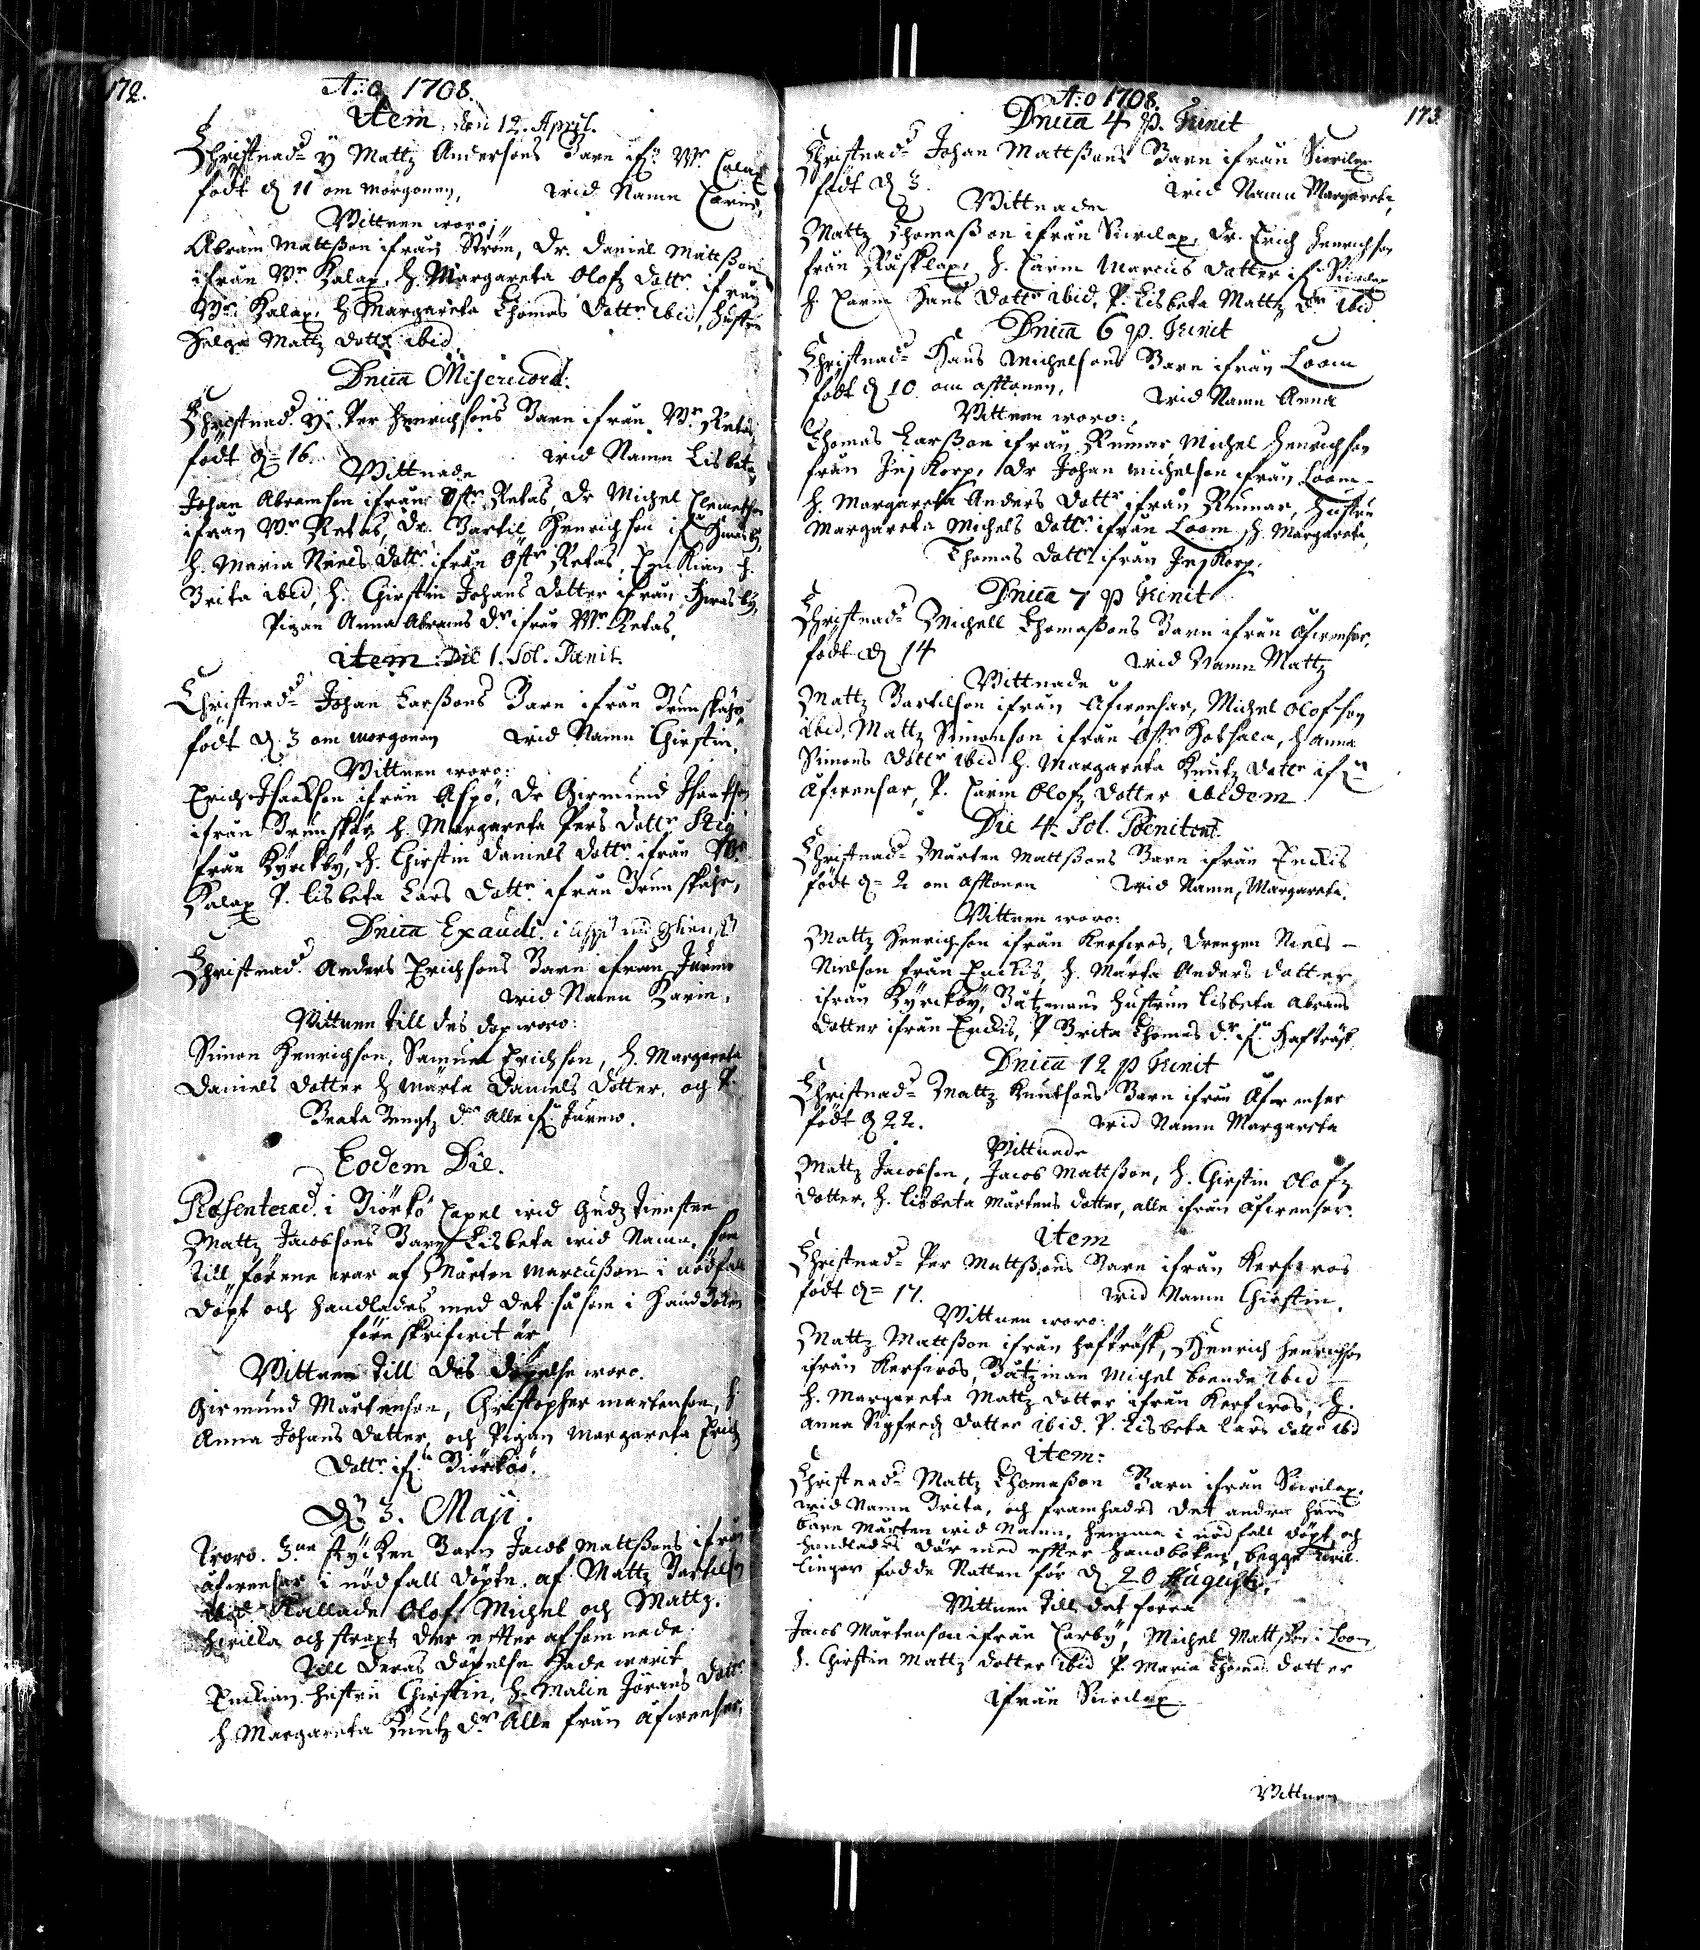 172.
A:o 1708.
Item den 12. April.
Christnad= Mattz Andersons Barn ifr: Wr Calax
födt d 11 om morgonen, wid Namn Carin,
Wittnen woro;
Abram Mattßon ifrån Ström, Dr. Daniel Mattßon
ifrån Wr Kalax, h. Margareta Olofz dottr ifrån
Wr Kalax, h Margareta Thomas dottr ibid, hustru
Helga Mattz dottr ibid
Dnica Misericord:
Christnad Per Henrichsons Barn ifrån Wr Retas
födt d= 16. wid Namn Lisbeta
Wittnade
Johan Abramson ifrån Öftr Retas, Dr Michel Clemetson
ifrån Wr Retas, Dr. Bertil Henrichson
h. Maria Niels dottr ifrån Öftr Retas, Enckian h.
Brita ibid, h. Chirstin Johans dotter ifrån
Pigan Anna Abrams dr ifrån Wr Retas,
item Die 1. Sol. Pænit.
Christnad= Johan Larßons Barn ifrån Brunskähr
födt d. 3 om morgonen wid Namn Chirstin,
Wittnen woro:
Erich Isaakson ifrån Aspö, Dr Girmund Isaakson
ifrån Brunskär h. Margareta Pers dottr
från Kyrckby, h. Chirstin Daniels dottr ifrån Wr
Kalax P. Lisbeta Lars dottr ifrån Brunskähr,
Dnica Exaudi
Christnad Anders Erichsons Barn ifrån Jurmo
wid Namn Karin,
Wittnen till des dop woro:
Simon Henrichson, Samuel Erichson, h. Margareta
Daniels dotter h Märta Daniels dotter, och P.
Beata Bengtz dr Alle ifr Jurmo.
Eodem Die.
Præsenterad i Biörkö Capel wid Gudztiensten
Mattz Jacobsons Barn Lisbeta wid Namn, som
till förene war af Mårten Marcußon i nödfall
döpt och handlades med det så som i Handboken
före skrifwit är
Wittnen till des döpelse woro.
Girmund Mårtenson, Christopher mårtenson, h
Anna Johans dotter, och Pigan Margareta Erich
dottr ifr Biörköö.
D. 3. Maji.
woro. 3ne stycken Barn Jacob Mattßons ifrån
åfwensar i nödfall döpte, af Mattz Bertilson
Kallade Olof Michel och Mattz.
hwilka och straxt der efter afsomnade.
till deras döpelse hade warit
Enckian hustru Chirstin, h. Malin Jörans dottr
h Margareta Knutz dr Alle från åfwensar,
173
A:o 1708.
Dnica 4 p. Trinit
Christnad= Johan Mattßons Barn ifrån
födt d 3. wid Namn Margareta,
Wittnade
Mattz Thomaßon ifrån Dr. Erich Henrichson
från h. Carin Marcus dotter
h. Carin Hans dottr ibid, P. Lisbeta Mattz dr ibid
Dnica 6 p. Trinit
Christnad= Hans Michelsons Barn ifrån Loom
födt d 10 om afftonen, wid Namn Anna
Wittnen woro:
Thomas Larßon ifrån Rumar, Michel Henrichson
från Korp, Dr Johan Michelson ifrån Loom-
h. Margareta Anders dottr ifrån Rumar, hustru
Margareta Michels dottr ifrån Loom, h. Margareta
Thomas dottr ifrån Korp.
Dnica 7 p Trinit
Christnad= Michell Thomaßons Barn ifrån åfwensar,
födt d 14 wid Namn Mattz
Wittnade
Mattz Bertilson ifrån Åfwensar, Michel Olofson
ibid, Mattz Simonson ifrån Öftr h Anna
Simons dottr ibid h. Margareta Knutz dottr ifrn
åfwensar, P. Carin Olofz dotter ibidem
Die 4. Sol. Pœnitent.
Christnad= Mårten Mattßons Barn ifrån Enckis
födt d= 2 om afftonen wid Namn, Margareta.
Wittnen woro:
Mattz Henrichson ifrån Kerfwos, Drengen Niels-
Nielson från Enckis, h. Märta Anders dotter
ifrån Kyrckby, Båtzmans hustrun Lisbeta Abrams
dotter ifrån Enckis, P Brita Thomas dr ifr: Hafträsk,
Dnica 12 p Trinit
Christnad= Mattz Knutsons Barn ifrån Åfwensar
födt d 22. wid Namn Margareta
Wittnade
Mattz Jacobson, Jacob Mattßon, h. Chirstin Olofz
dotter, h. Lisbeta Mårtens dotter, alle ifrån Åfwensar.
item
Christnad= Per Mattßons Barn ifrån Kerfwos
födt d= 17. wid Namn Chirstin.
Wittnen woro:
Mattz Mattßon ifrån hafträsk, Henrich Henrichson
ifrån Kerfwos, Båtzman Michel boende ibid
h. Margareta Mattz dotter ifrån Kerfwos, h.
Anna Sigfredz dotter ibid. P. Lisbeta Lars dottr ibd
item:
Christnad= Mattz Thomaßon Barn ifrån
wid Namn Brita, och framhades det andra hans
barn Mårten wid Namn, hemma i nödfall döpt och
handlades där med efter handboken, begge twil-
lingar födde Natten för d 20 Augusti.
Wittnen till det förra
Jacob Mårtenson ifrån Carby, Michel Mattßon i Loom
h. Chirstin Mattz dotter ibid P. Maria Thomas dotter
ifrån
Wittnen